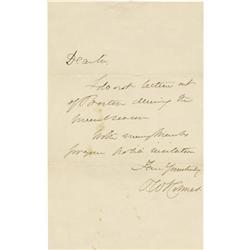 Dear Sir,
I do not lecture out
of Boston during the
present season
With many thanks
for your polite invitation
I am Yours truly
O W Holmes